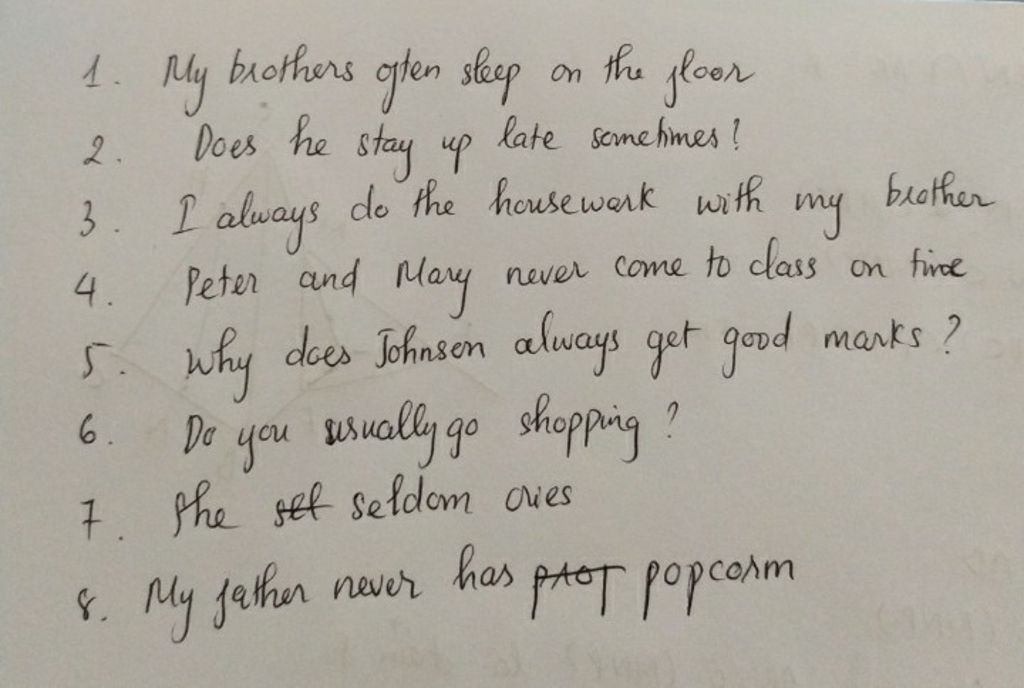 1. My brothers often sleep on the floor
2. Does he stay up late sometimes?
3. I always do the housework with my brother
4. Peter and Mary never come to class on time
5. Why does Johnson always get good marks?
6. Do you usually go shopping?
7. She sel seldom cries
8. My father never has popcorm